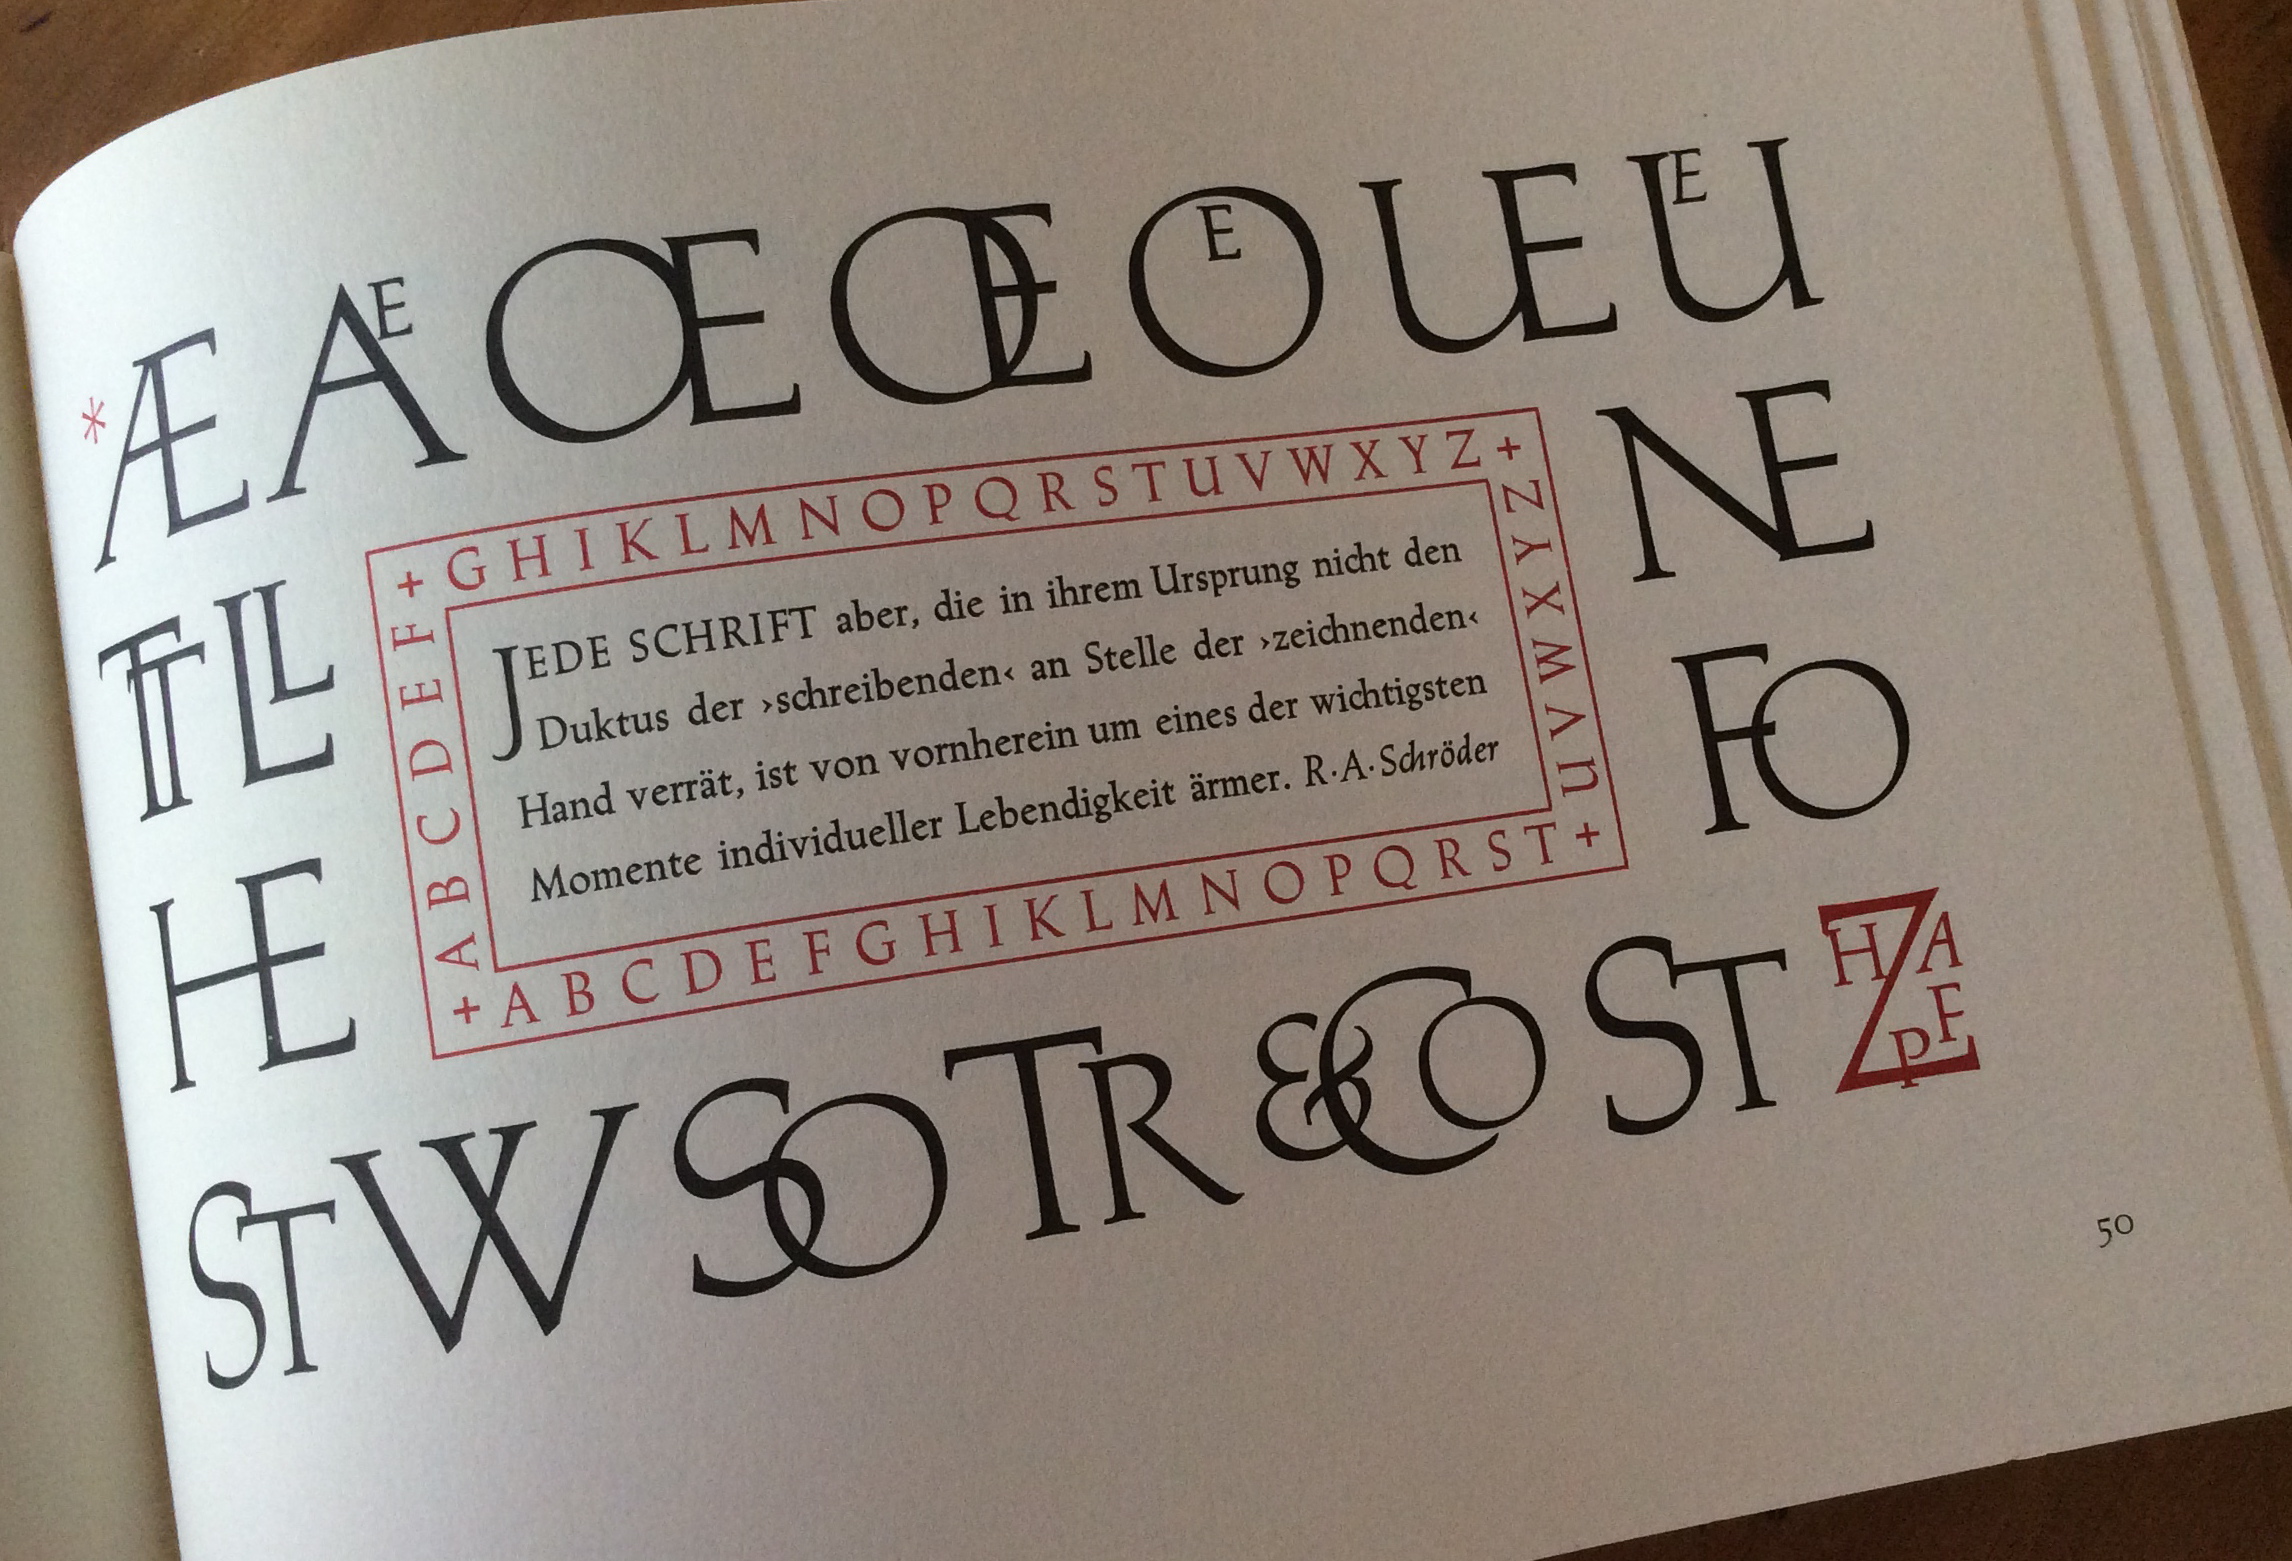 * Æ AE Œ Œ OE UE UE
TT LL
NE
HE
FO
+ G H I K L M N O P Q R S T U V W X Y Z +
A B C D E F
U V W X Y Z
JEDE SCHRIFT aber, die in ihrem Ursprung nicht den
Duktus der ›schreibenden‹ an Stelle der ›zeichnenden‹
Hand verrät, ist von vornherein um eines der wichtigsten
Momente individueller Lebendigkeit ärmer. R·A·Schröder
+ A B C D E F G H I K L M N O P Q R S T +
ST W SO TR & CO ST
Z HAPF
50